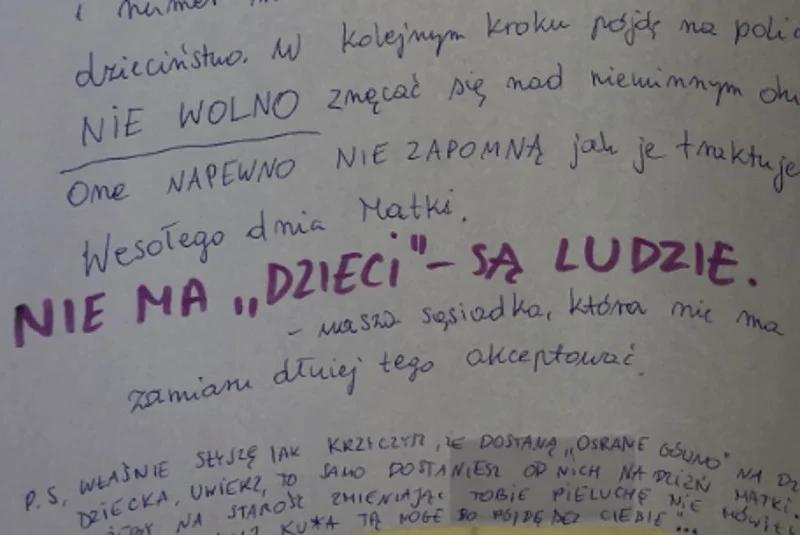 i numer
dzieciństwo. W kolejnym kroku pójdę na polic
NIE WOLNO znęcać się nad niewinnym
One NAPEWNO NIE ZAPOMNĄ jak je traktuje
Wesołego dnia Matki.
NIE MA „DZIECI" - SĄ LUDZIE.
- wasza sąsiadka, która nie ma
zamiaru dłużej tego akceptować.
P.S. WŁAŚNIE SŁYSZĘ JAK KRZYCZYSZ, ŻE DOSTANĄ „OSRANE GÓWNO" NA DZ
DZIECKA, UWIERZ, TO SAMO DOSTANIESZ OD NICH NA DZIEŃ MATKI.
NA STAROŚĆ ZMIENIAJĄC TOBIE PIELUCHĘ NIE MÓWIŁY
KU*A TĄ NOGĘ BO PÓJDĘ BEZ CIEBIE"...